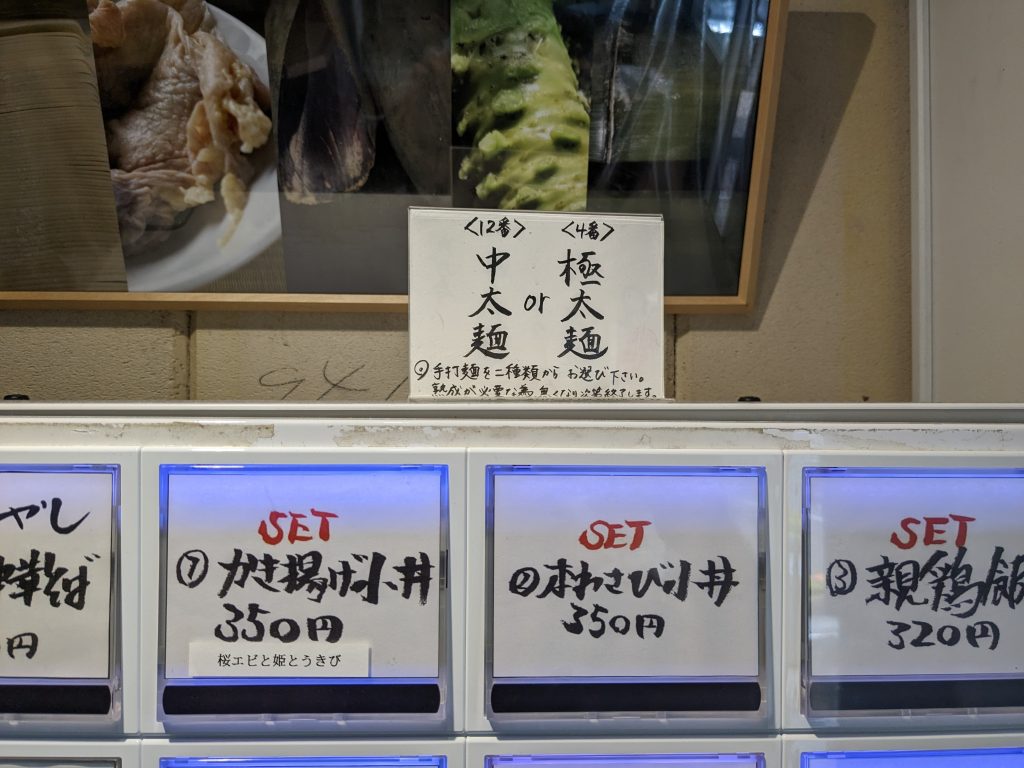 <12番>
中太麺
or
<4番>
極太麺
手打麺を二種類からお選び下さい。
熟成が必要な為無くなり次第終了します。
やし
そば
円
SET
① かき揚げ小丼
350円
桜エビと姫とうきび
SET
② 本わさび小丼
350円
SET
③ 親鶏飯
320円